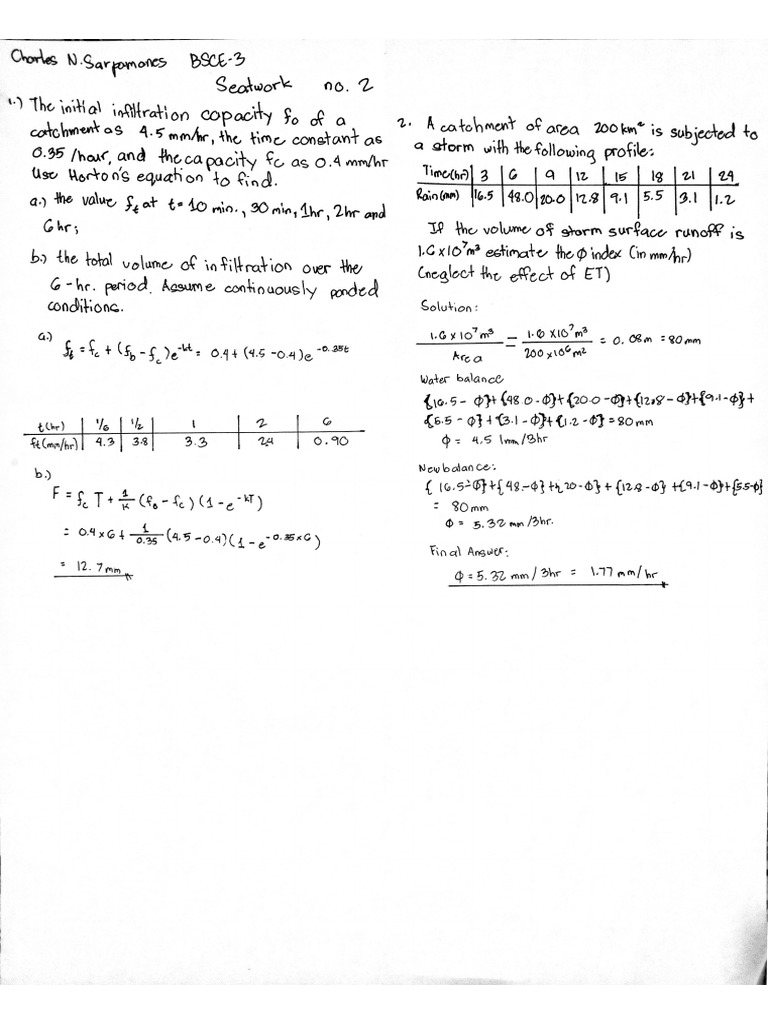 Charles N. Sarpamones BSCE-3
Seatwork no. 2
1.) The initial infiltration capacity fo of a
catchment as 4.5 mm/hr, the time constant as
0.35 /hour, and the capacity fc as 0.4 mm/hr
Use Horton's equation to find.
a.) the value ft at t = 10 min., 30 min, 1hr, 2hr and
6hr;
b.) the total volume of infiltration over the
6-hr. period. Assume continuously ponded
conditions.
a.) ft = fc + (fo - fc)e^-kt = 0.4 + (4.5 - 0.4)e^-0.35t
t(hr) | 1/6 | 1/2 | 1 | 2 | 6
ft(mm/hr) | 4.3 | 3.8 | 3.3 | 2.4 | 0.90
b.)
F = fc T + 1/K (fo - fc)(1 - e^-kT)
= 0.4 x 6 + 1/0.35 (4.5 - 0.4)(1 - e^-0.35x6)
= 12.7 mm
2. A catchment of area 200 km² is subjected to
a storm with the following profile:
Time(hr) | 3 | 6 | 9 | 12 | 15 | 18 | 21 | 24
Rain(mm) | 16.5 | 48.0 | 20.0 | 12.8 | 9.1 | 5.5 | 3.1 | 1.2
If the volume of storm surface runoff is
1.6 x 10⁷ m³ estimate the Ø index (in mm/hr)
(neglect the effect of ET)
Solution:
1.6 x 10⁷ m³ / Area = 1.6 x 10⁷ m³ / 200 x 10⁶ m² = 0.08m = 80mm
Water balance
{16.5 - Ø} + {48.0 - Ø} + {20.0 - Ø} + {12.8 - Ø} + {9.1 - Ø} +
{5.5 - Ø} + {3.1 - Ø} + {1.2 - Ø} = 80mm
Ø = 4.51mm/3hr
New balance:
{16.5 - Ø} + {48. - Ø} + {20 - Ø} + {12.8 - Ø} + {9.1 - Ø} + {5.5 - Ø}
= 80mm
Ø = 5.32 mm/3hr.
Final Answer:
Ø = 5.32 mm/3hr = 1.77 mm/hr